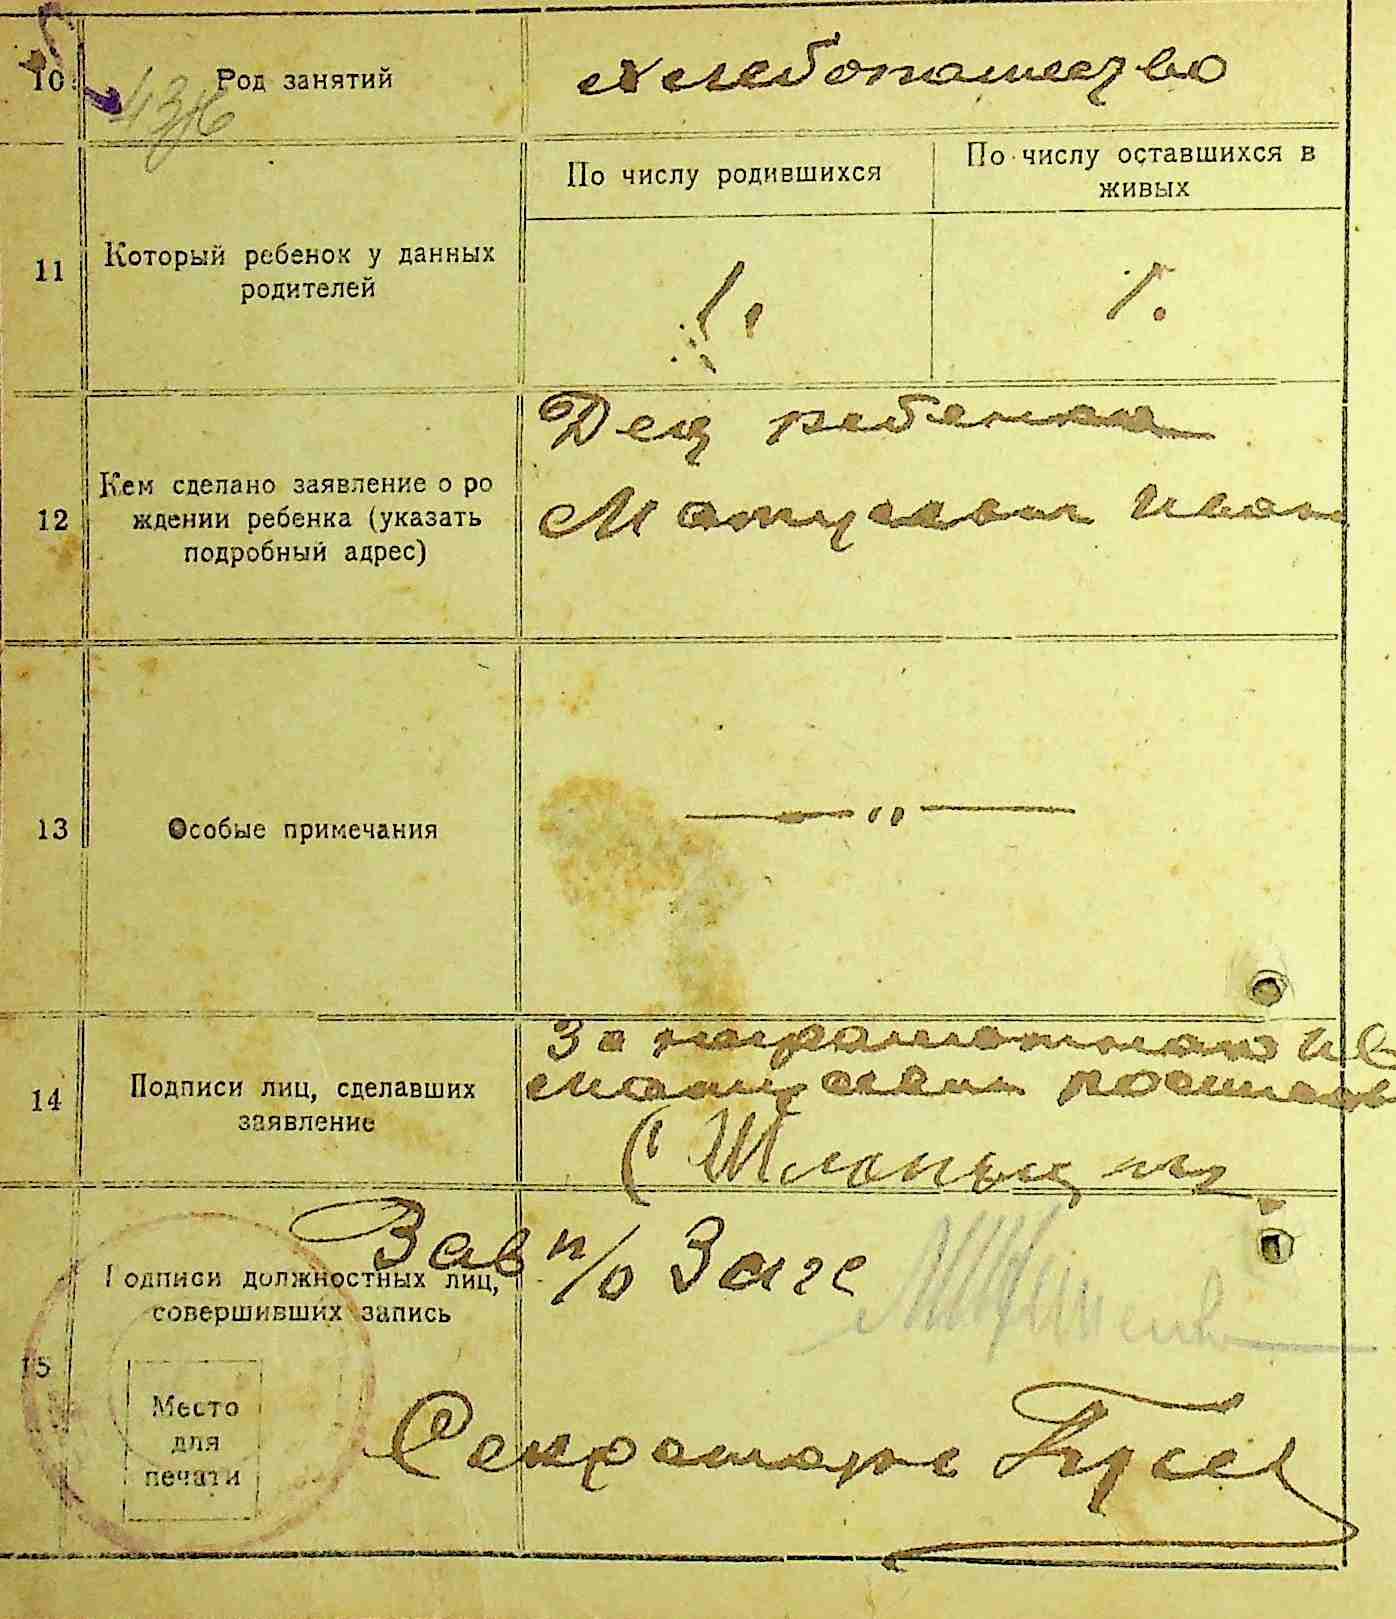 10
Род занятий
хлебопашество
11
Который ребенок у данных
родителей
По числу родившихся
По числу оставшихся в
живых
1.
1.
12
Кем сделано заявление о ро
ждении ребенка (указать
подробный адрес)
Дед ребенка
Матусевич Иван
13
Особые примечания
— " —
14
Подписи лиц, сделавших
заявление
За неграмотного
Матусевич
15
Подписи должностных лиц,
совершивших запись
Место
для
печати
Зав п/о Загс
Секретарь